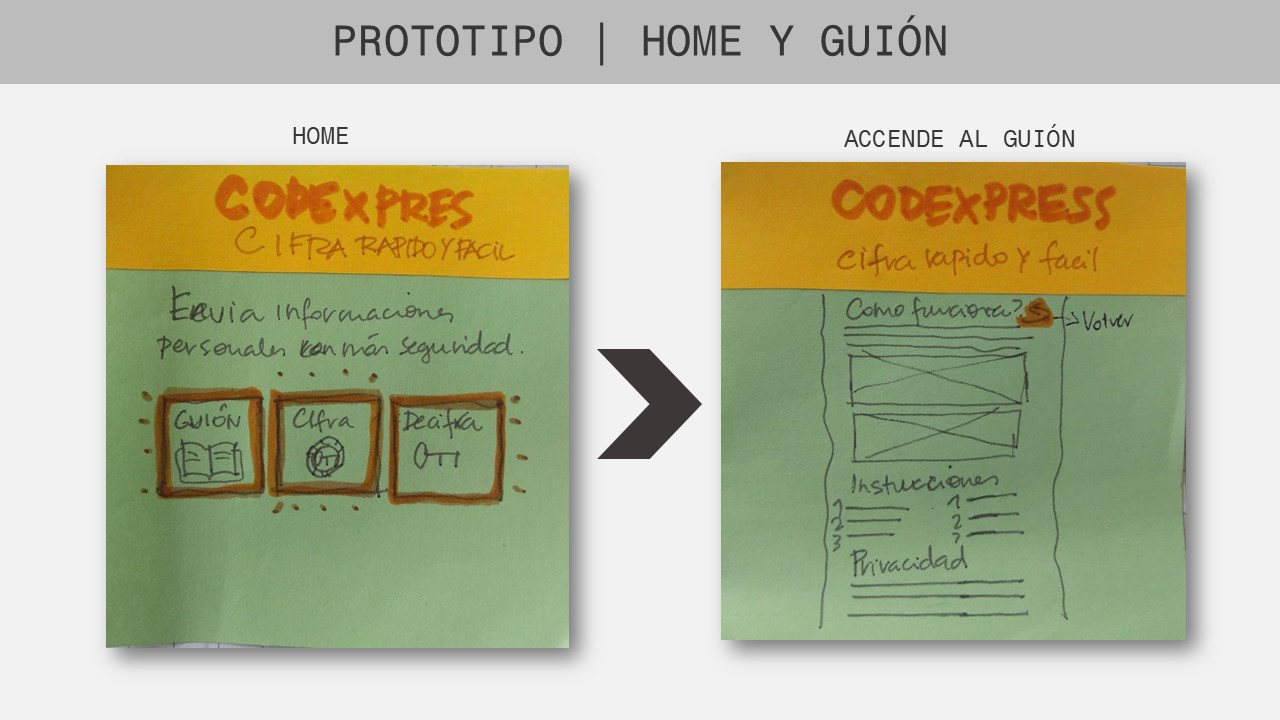 PROTOTIPO | HOME Y GUIÓN
HOME
CODEXPRES
CIFRA RAPIDO Y FACIL
Envia informaciones
personales con más seguridad.
GUIÓN
Cifra
Decifra
ACCENDE AL GUIÓN
CODEXPRESS
cifra rapido y facil
Como funciona?
Volver
Instucciones
1 1
2 2
3 3
Privacidad